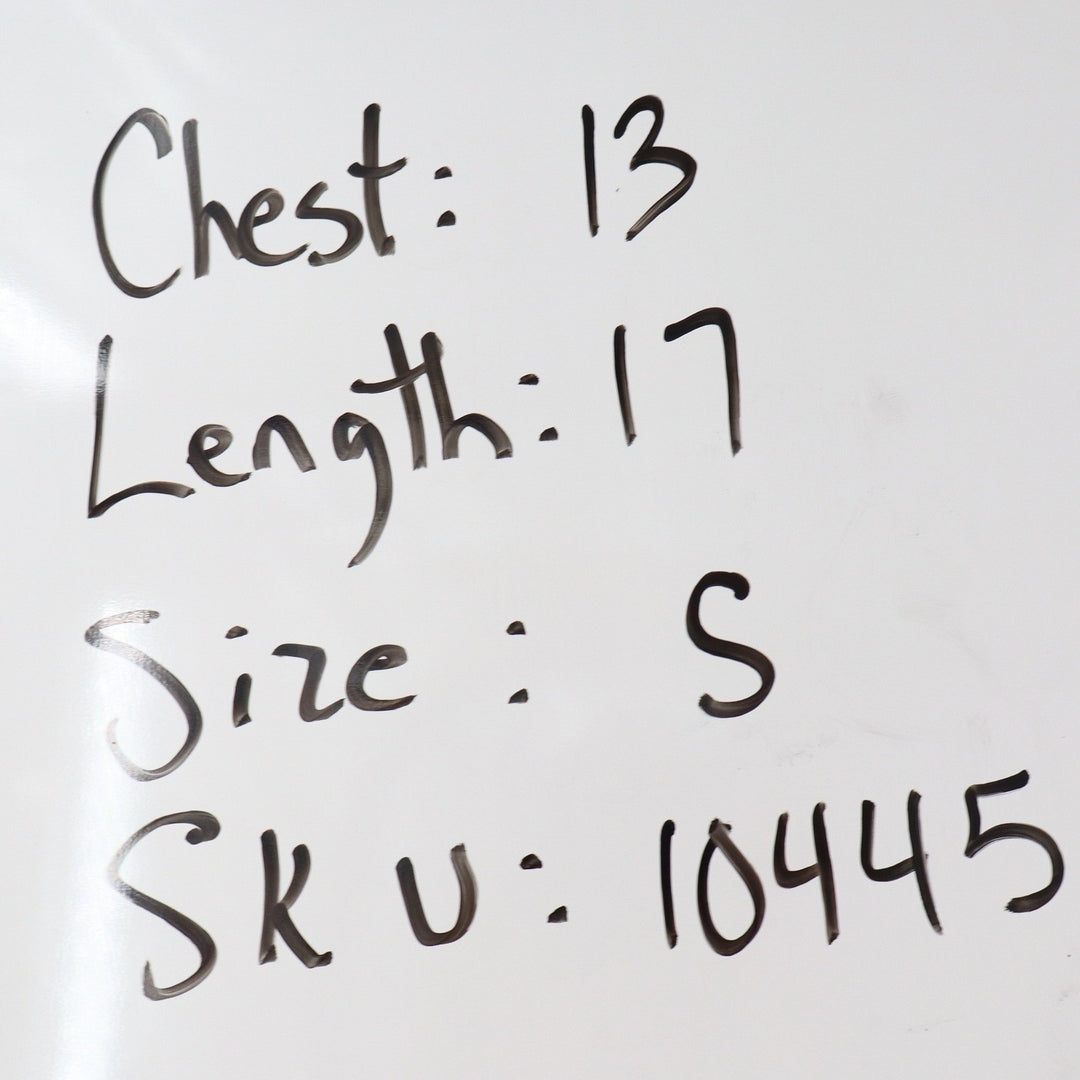 Chest: 13
Length: 17
Size: S
SKU: 10445